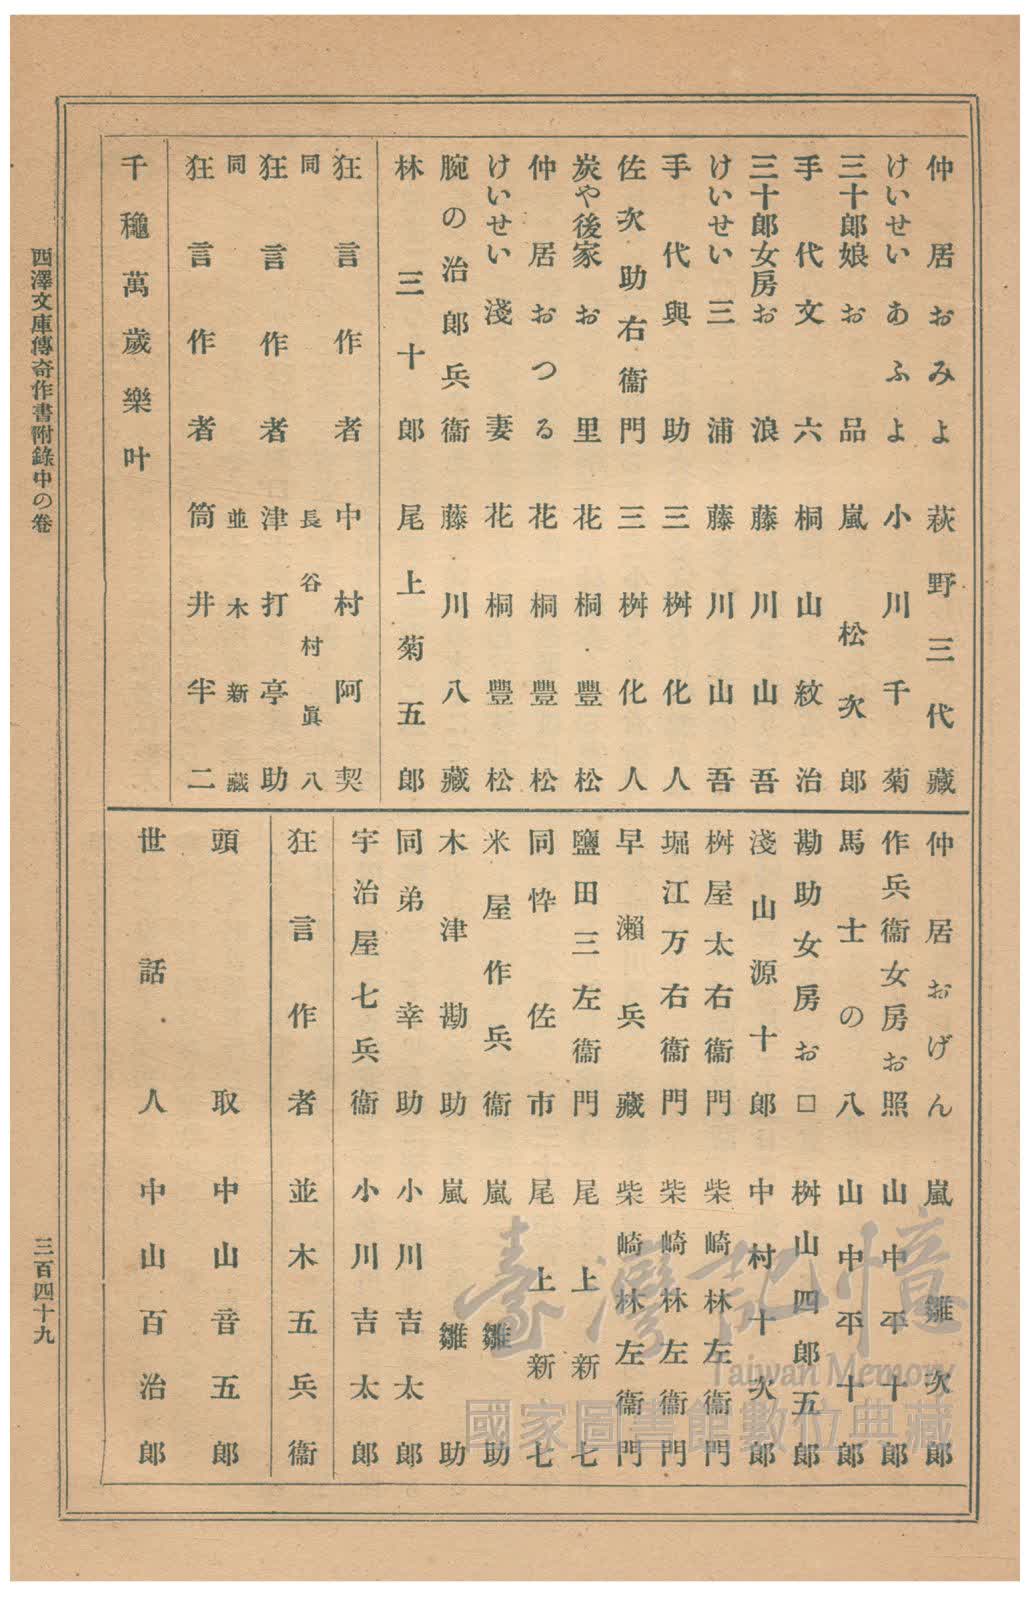 仲居おみよ　萩野三代藏
けいせいあふよ　小川千菊
三十郎娘お品　嵐松次郎
手代文六　桐山紋治
三十郎女房お浪　藤川山吾
けいせい三浦　藤川山吾
手代與助　三桝化人
佐次助右衞門　三桝化人
炭や後家お里　花桐豐松
仲居おつる　花桐豐松
けいせい淺妻　花桐豐松
腕の治郎兵衞　藤川八藏
林三十郎　尾上菊五郎
狂言作者　中村阿契
同　長谷村眞八
狂言作者　津打亭助
同　並木新藏
狂言作者　筒井半二
千龝萬歲樂叶
仲居おげん　嵐雛次郎
作兵衞女房お照　山中平十郎
馬士の八　山中平十郎
勘助女房お□　桝山四郎五郎
淺山源十郎　中村十次郎
桝屋太右衞門　柴崎林左衞門
堀江万右衞門　柴崎林左衞門
早瀨兵藏　柴崎林左衞門
鹽田三左衞門　尾上新七
同忰佐市　尾上新七
米屋作兵衞　嵐雛助
木津勘助　嵐雛助
同弟幸助　小川吉太郎
宇治屋七兵衞　小川吉太郎
狂言作者　並木五兵衞
頭取　中山音五郎
世話人　中山百治郎
西澤文庫傳奇作書附錄中の卷
三百四十九
臺灣記憶
Taiwan Memory
國家圖書館數位典藏